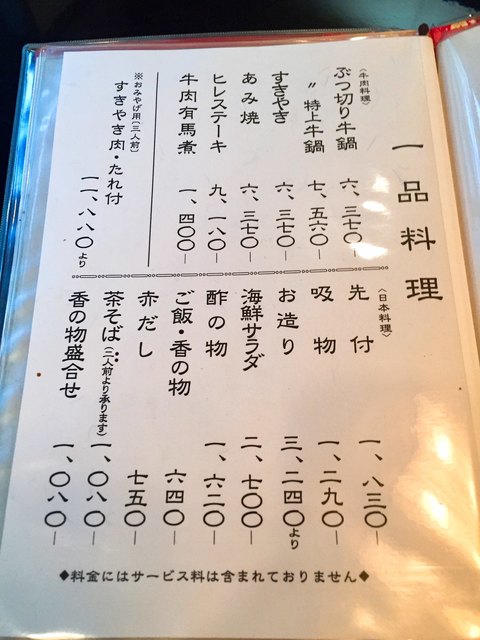 一品料理
〈牛肉料理〉
ぶつ切り牛鍋 六、三七〇―
〃 特上牛鍋 七、五六〇―
すきやき 六、三七〇―
あみ焼 六、三七〇―
ヒレステーキ 九、一八〇―
牛肉有馬煮 一、四〇〇―
※おみやげ用(三人前)
すきやき肉・たれ付 一一、八八〇より
〈日本料理〉
先付 一、八三〇―
吸物 一、二九〇―
お造り 三、二四〇より
海鮮サラダ 二、七〇〇―
酢の物 一、六二〇―
ご飯・香の物 六四〇―
赤だし 七五〇―
茶そば…(二人前より承ります) 一、〇八〇―
香の物盛合せ 一、〇八〇―
◆料金にはサービス料は含まれておりません◆